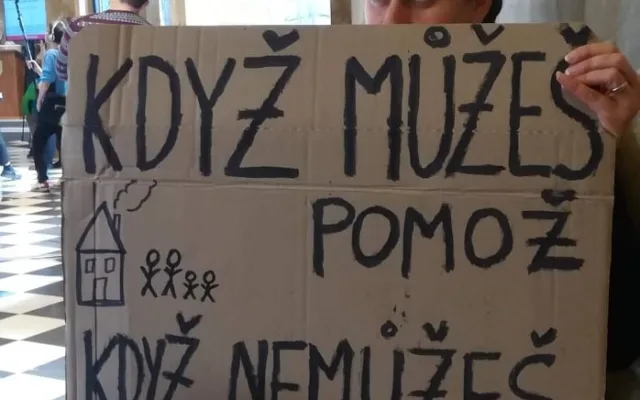 KDYŽ MŮŽEŠ
POMOŽ
KDYŽ NEMŮŽEŠ